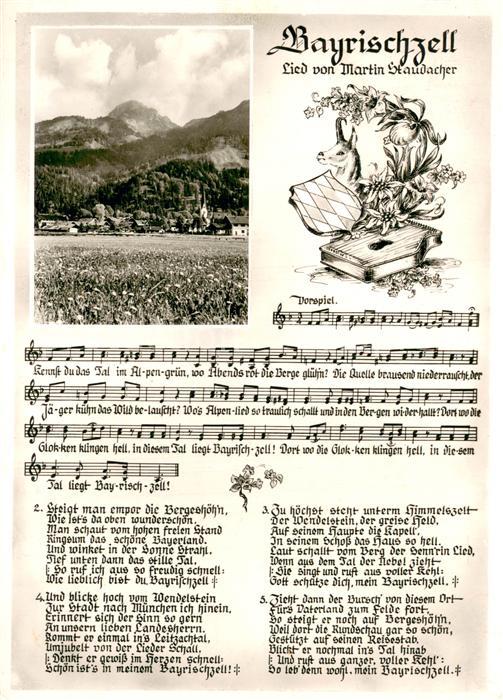 Bayrischzell
Lied von Martin Staudacher
Vorspiel.
Kennst du das Tal im Al-pen-grün, wo Abends rot die Berge glühn? Die Quelle brausend niederrauscht, der
Jä-ger kühn das Wild be-lauscht? Wo's Alpen-lied so traulich schallt und in den Ber-gen wi-der hallt? Dort wo die
Glok-ken klingen hell, in diesem Tal liegt Bayrisch-zell! Dort wo die Glok-ken klingen hell, in die-sem
Tal liegt Bay-risch-zell!
2. Steigt man empor die Bergeshöh'n,
Wie ist's da oben wunderschön.
Man schaut vom hohen freien Stand
Ringsum das schöne Bayerland.
Und winket in der Sonne Strahl,
Tief unten dann das stille Tal,
|: So ruf ich aus so freudig schnell:
Wie lieblich bist du, Bayrischzell :|
3. Zu höchst steht unterm Himmelszelt
Der Wendelstein, der greise Held,
Auf seinem Haupte die Kapell',
In seinem Schoß das Haus so hell.
Laut schallt vom Berg der Senn'rin Lied,
Wenn aus dem Tal der Nebel zieht
|: Sie singt und ruft aus voller Kehl:
Gott schütze dich, mein Bayrischzell. :|
4. Und blicke hoch vom Wendelstein
Zur Stadt nach München ich hinein,
Erinnert sich der Sinn so gern
An unsern lieben Landesherrn.
Kommt er einmal in's Leitzachtal,
Umjubelt von der Lieder Schall,
|: Denkt er gewiß im Herzen schnell:
Schön ist's in meinem Bayrischzell! :|
5. Zieht dann der Bursch' von diesem Ort
Für's Vaterland zum Felde fort,
So steigt er noch auf Bergeshöh'n,
Weil dort die Rundschau gar so schön,
Gestützt auf seinen Reisestab,
Blickt er nochmal in's Tal hinab
|: Und ruft aus ganzer, voller Kehl':
So leb' denn wohl, mein Bayrischzell. :|